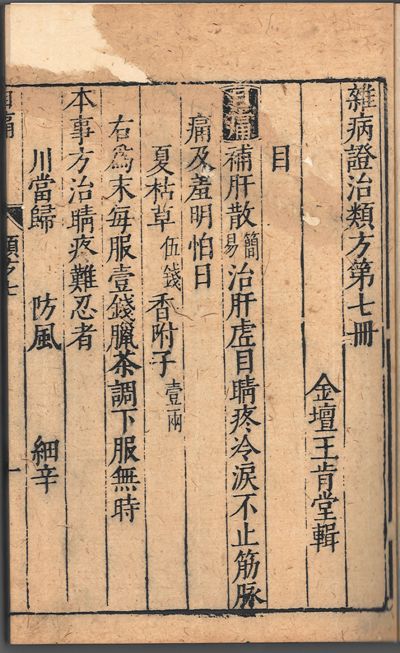 雜病證治類方第七冊
金壇王肯堂輯
目
目痛 補肝散 簡易 治肝虛目睛疼冷淚不止筋脉
痛及羞明怕日
夏枯草 伍錢 香附子 壹兩
右為末每服壹錢臘茶調下服無時
本事方治睛疼難忍者
川當歸 防風 細辛
目痛 類之七 一